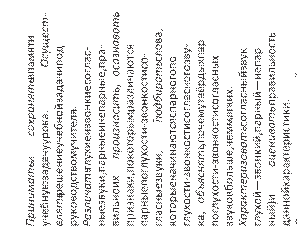 Принимать и сохранять в памяти
учебную задачу урока. Осущест-
влять решение учебной задачи под
руководством учителя.
Различать глухие и звонкие соглас-
ные звуки, парные и непарные, пра-
вильно их произносить, осознавать
признаки, по которым различаются
парные по глухости-звонкости со-
гласные звуки, подбирать слова,
которые начинаются с парного по
глухости-звонкости согласного зву-
ка, объяснять, почему твёрдых пар
по глухости-звонкости согласных
звуков больше, чем мягких.
Характеризовать согласный звук
(глухой — звонкий, парный — непар-
ный) и оценивать правильность
данной характеристики.